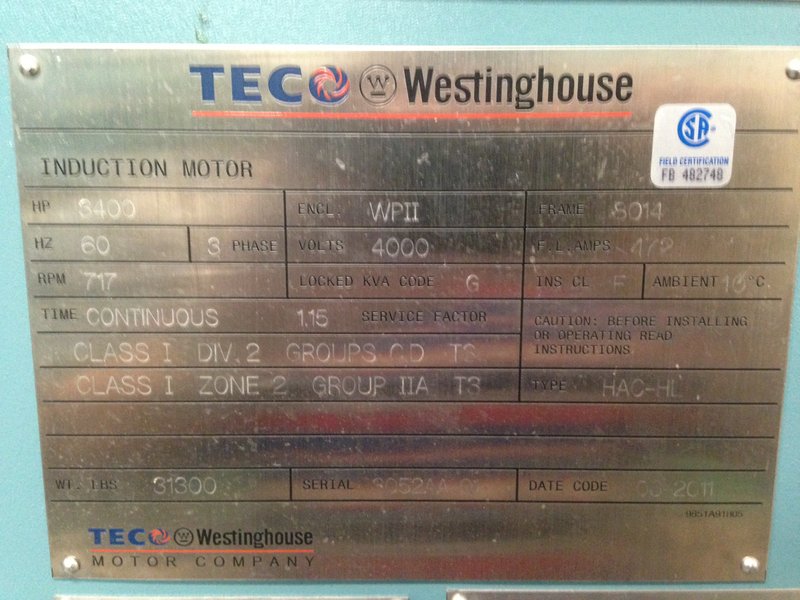 TECO Westinghouse
CSA
FIELD CERTIFICATION
FB 482748
INDUCTION MOTOR
HP 3400 ENCL. WPII FRAME 8014
HZ 60 3 PHASE VOLTS 4000 F.L.AMPS
RPM 717 LOCKED KVA CODE G INS CL F AMBIENT °C
TIME CONTINUOUS 1.15 SERVICE FACTOR
CAUTION: BEFORE INSTALLING
OR OPERATING READ
INSTRUCTIONS
CLASS I DIV.2 GROUPS C,D T3
CLASS I ZONE 2 GROUP IIA T3 TYPE HAC-HL
WT. LBS 31300 SERIAL DATE CODE 2011
9851A91H05
TECO Westinghouse
MOTOR COMPANY